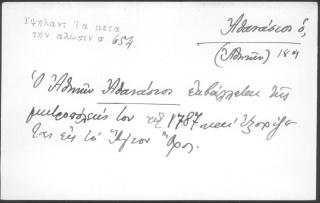 Ὑψηλαντ Τα μετα
την αλωσιν σ 654.
Ἀθανάσιος ὁ,
(Ἀθηνῶν) 18
Ὁ Ἀθηνῶν Ἀθανάσιος ἐκβάλλεται τῆς
μητροπόλεώς του τῷ 1787 καὶ ἐξορίζε
ται εἰς τὸ Ἅγιον Ὄρος.